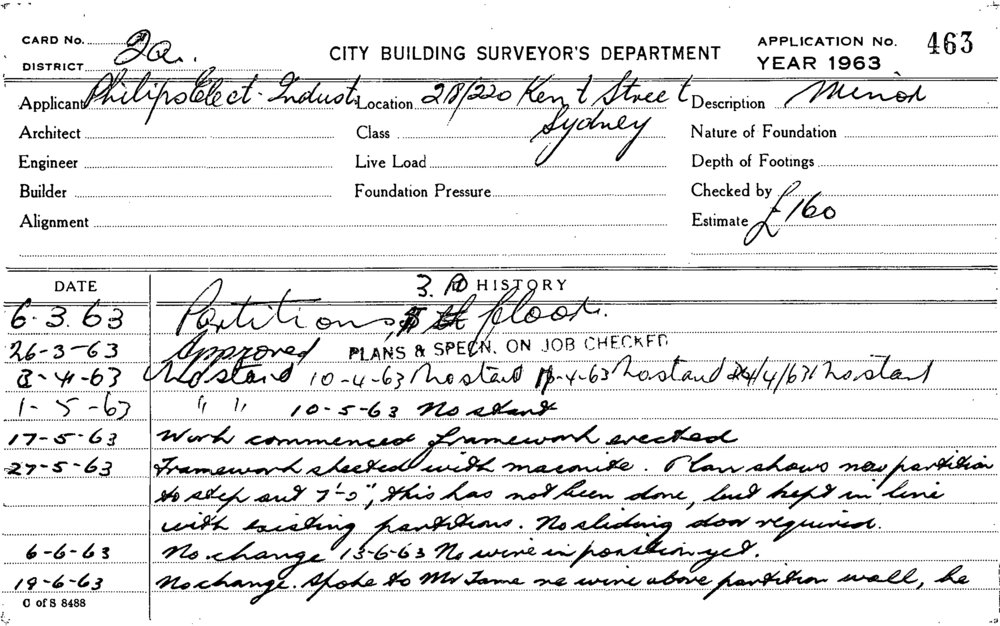 CARD No. 2a. CITY BUILDING SURVEYOR'S DEPARTMENT APPLICATION No. 463
DISTRICT YEAR 1963
Applicant Philips Elect. Indust. Location 218/220 Kent Street Description Minor
Sydney
Architect Class Nature of Foundation
Engineer Live Load Depth of Footings
Builder Foundation Pressure Checked by
Alignment Estimate £160
DATE 3. HISTORY
6.3.63 Partitions, floor.
26-3-63 Approved PLANS & SPECN. ON JOB CHECKED
3-4-63 No start 10-4-63 No start 18-4-63 No start 24/4/63 No start
1-5-63 " " 10-5-63 No start
17-5-63 Work commenced framework erected
27-5-63 Framework sheeted with masonite. Plan shows new partition
to step out 7'-0", this has not been done, but kept in line
with existing partitions. No sliding door required.
6-6-63 No change 13-6-63 No wire in position yet.
19-6-63 No change. Spoke to Mr Tame re wire above partition wall, he
C of S 8488